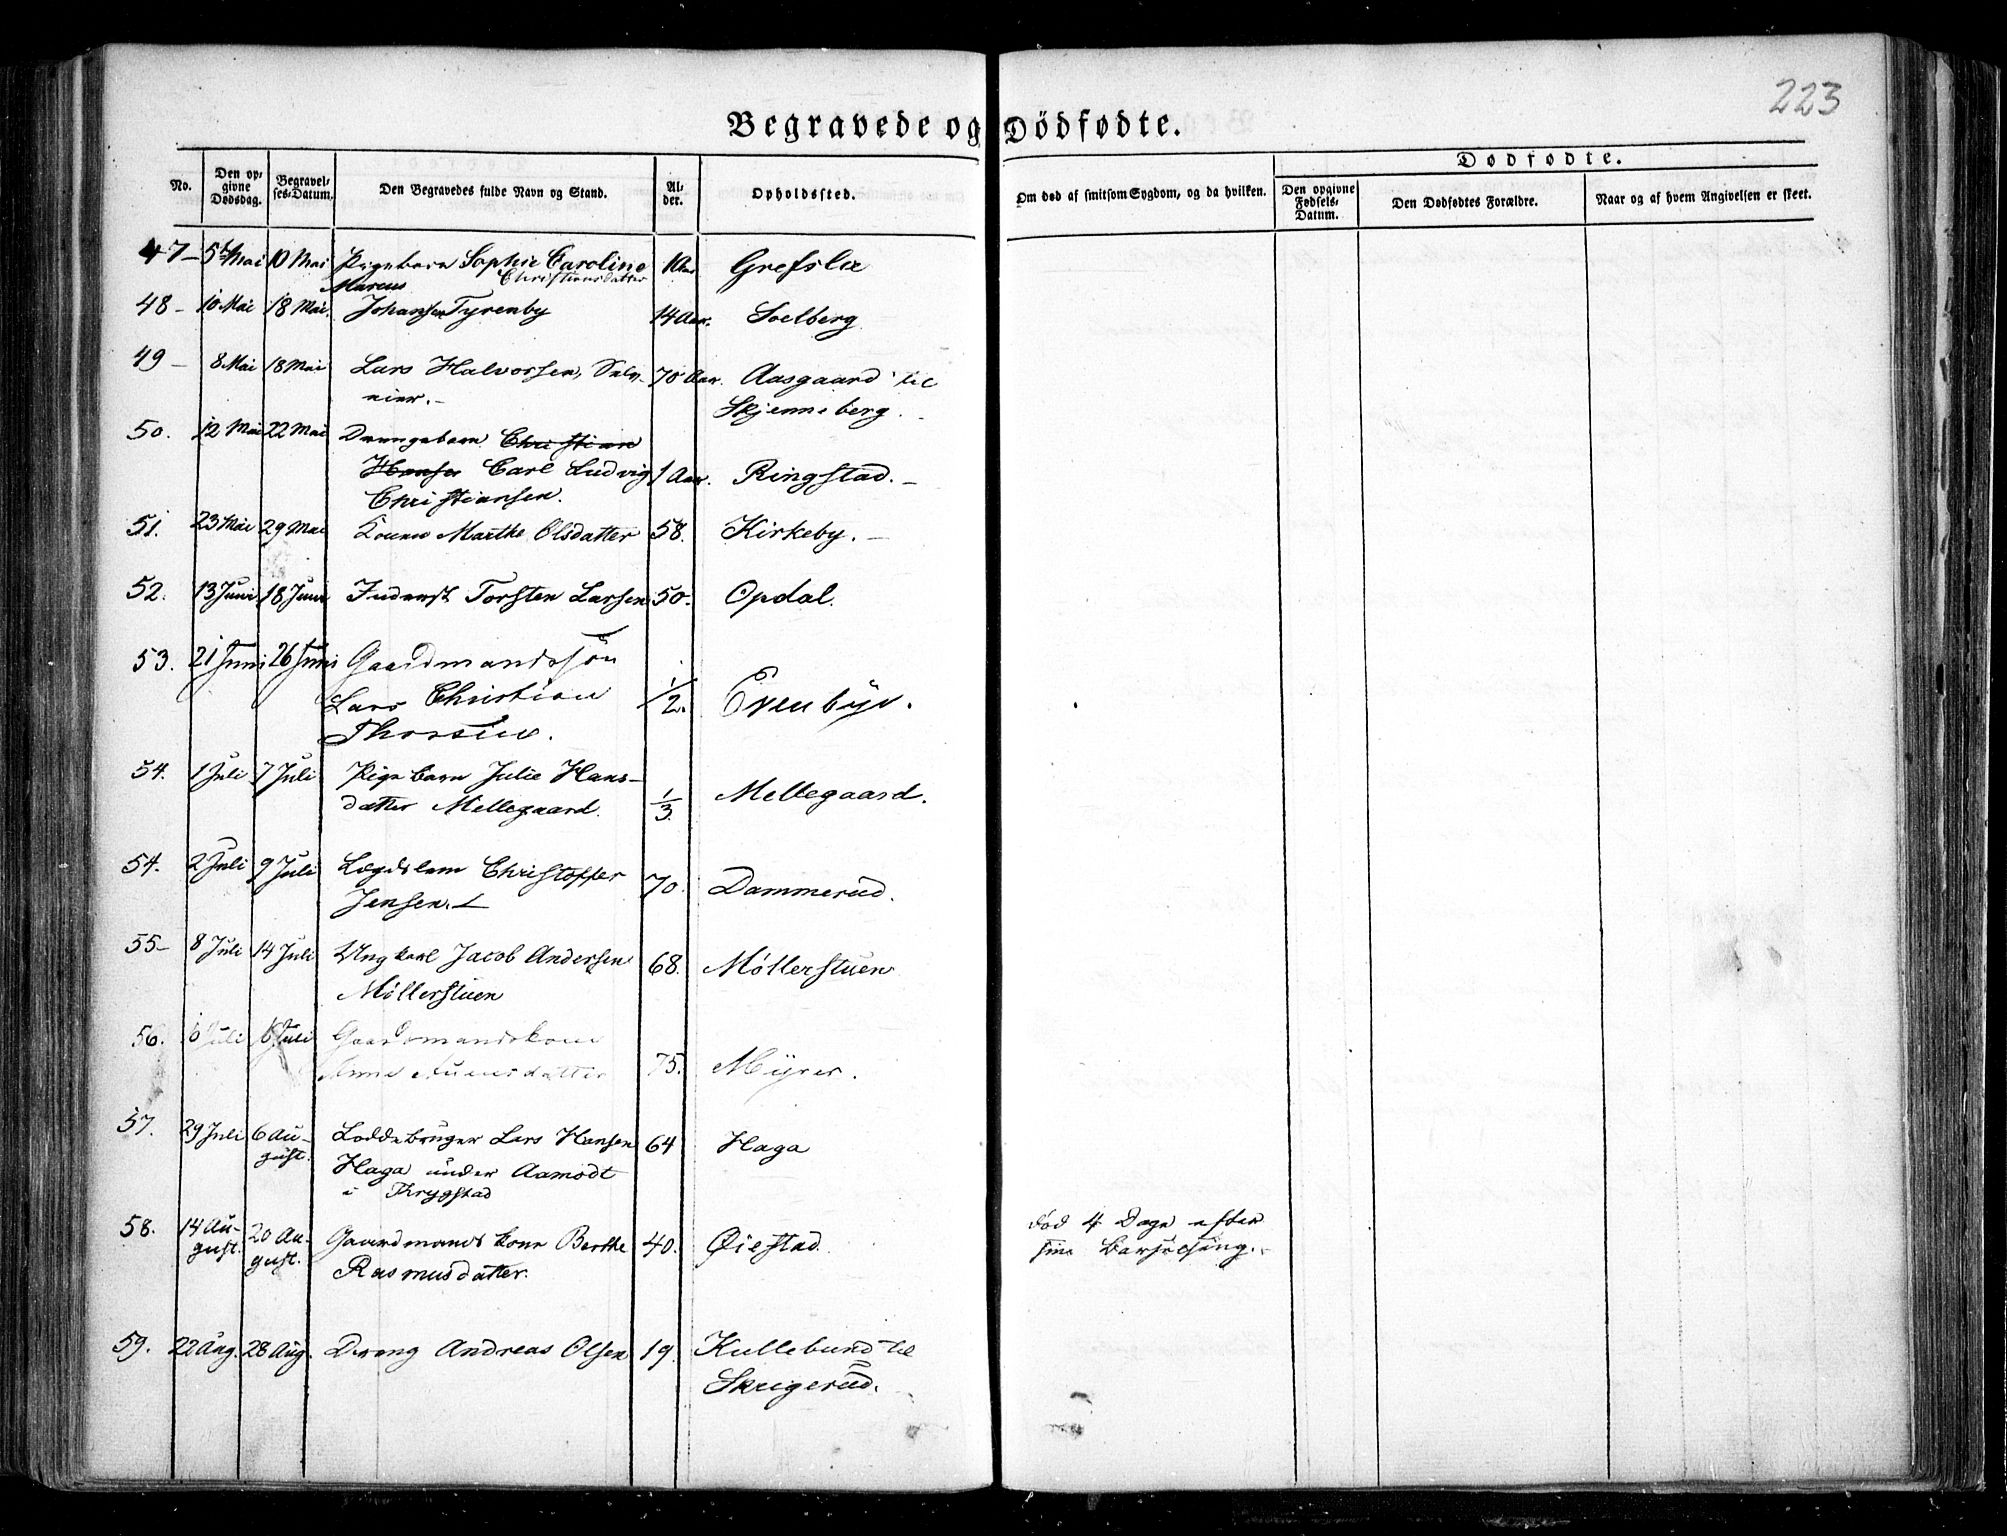 223
Begravede og Dödfødte.
No.
Den opgivne Dödsdag.
Begravelses-Datum.
Den Begravedes fulde Navn og Stand.
Alder.
Opholdssted.
Om död af smitsom Sygdom, og da hvilken.
Dødfødte.
Den opgivne Fødsels-Datum.
Den Dødfødtes Forældre.
Naar og af hvem Angivelsen er skeet.
47- 5 Mai 10 Mai Pigebarn Sophie Caroline Grefslie
Christiansdatter
Marcus
48- 10 Mai 18 Mai. Johansen Tyrenby 14 Aar. Soelberg
49- 8 Mai 18 Mai Lars Halvorsen, 70 Aar. Aasgaard til
Skjenneberg.
50. 12 Mai 22 Mai Drengebarn Christian
Hansen Carl Ludvig 1 Aar. Ringstad.-
Christiansen.
51. 23 Mai 29 Mai Konen Marthe Olsdatter 58. Kirkeby.-
52. 13 Juni 18 Juni Inderst Torsten Larsen 50. Opdal.
53. 21 Juni 26 Juni Gaardmandssön
Lars Christian 1/2. Evenbye.
Thorsen.
54. 1 Juli 7 Juli Pigebarn Julie Hans-
datter Mellegaard. 1/3. Mellegaard.
54. 2 Juli 9 Juli Lægdslem Christoffer
Jensen. 70. Dammerud.
55- 8 Juli 14 Juli Ungkarl Jacob Andersen 68. Møllerstuen
Møllerstuen
56. Juli Juli Gaardmandskone
Anne 75. Myrer.
57. 29 Juli 6 Au- Loddebruger Lars Hansen 64 Haga
gust. Haga under Aamodt
i Krygstad
58. 14 Au- 20 Au- Gaardmands kone Berthe 40. Øiestad. død 4 Dage efter
gust. gust. Rasmusdatter. sin Barselseng.-
59. 22 Aug. 28 Aug. Dreng Andreas Olsen 19. Kullebund til
Skrigerud.